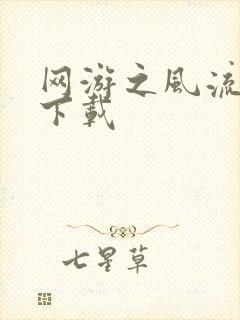 网游之风流
下载
七星草